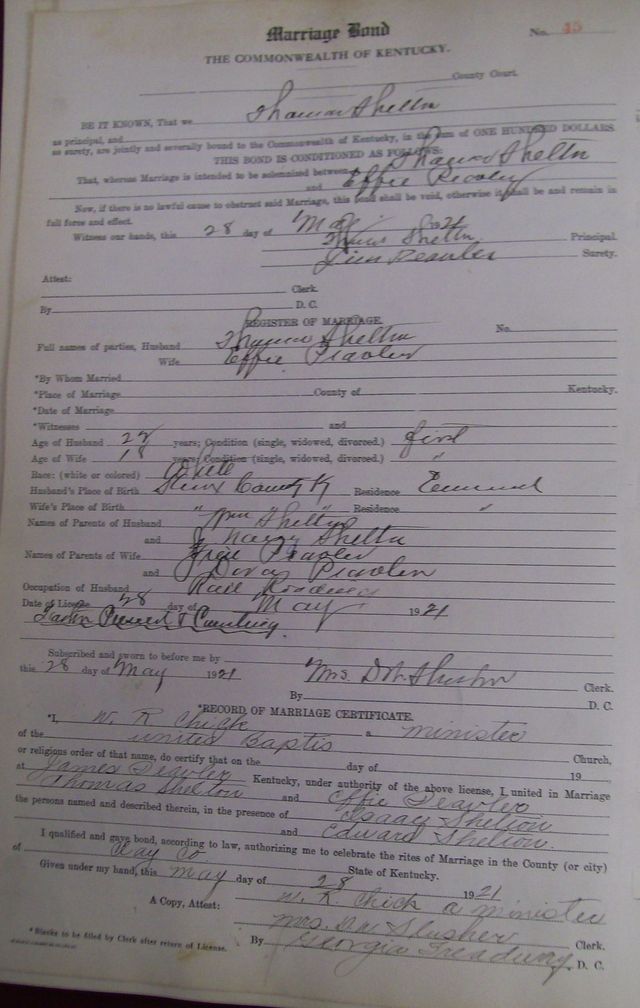 Marriage Bond
No. 45
THE COMMONWEALTH OF KENTUCKY.
County Court.
BE IT KNOWN, That we Thomas Shelton
as principal, and
as surety, are jointly and severally bound to the Commonwealth of Kentucky, in the sum of ONE HUNDRED DOLLARS.
THIS BOND IS CONDITIONED AS FOLLOWS:
That, whereas Marriage is intended to be solemnized between Thomas Shelton
and Effie
Now, if there is no lawful cause to obstruct said Marriage, this bond shall be void, otherwise it shall be and remain in
full force and effect.
Witness our hands, this 28 day of May 1921
Thomas Shelton Principal.
Surety.
Attest:
Clerk.
By D. C.
REGISTER OF MARRIAGE.
No.
Full names of parties, Husband Thomas Shelton
Wife Effie
*By Whom Married
*Place of Marriage County of Kentucky.
*Date of Marriage
*Witnesses and
Age of Husband years; Condition (single, widowed, divorced.) first
Age of Wife 18 years; Condition (single, widowed, divorced.) "
Race: (white or colored) White
Husband's Place of Birth County Ky Residence
Wife's Place of Birth " " Residence "
Names of Parents of Husband Wm Shelton
and Shelton
Names of Parents of Wife
and
Occupation of Husband Rail
Date of License 28 day of May 1921
Subscribed and sworn to before me by
this 28 day of May 1921 Mrs. D M Slusher Clerk.
By D. C.
*RECORD OF MARRIAGE CERTIFICATE.
*I, W. R Chick a minister
of the united Baptis Church,
or religious order of that name, do certify that on the day of 19
at James Kentucky, under authority of the above license, I united in Marriage
Thomas Shelton and Effie
the persons named and described therein, in the presence of Isaac Shelton
and Edward Shelton.
I qualified and gave bond, according to law, authorizing me to celebrate the rites of Marriage in the County (or city)
of Clay Co State of Kentucky.
Given under my hand, this May day of 28 1921
W. R. Chick a minister
A Copy, Attest: mrs. D M Slusher Clerk.
*Blanks to be filed by Clerk after return of License.
By Georgia Treadway. D. C.